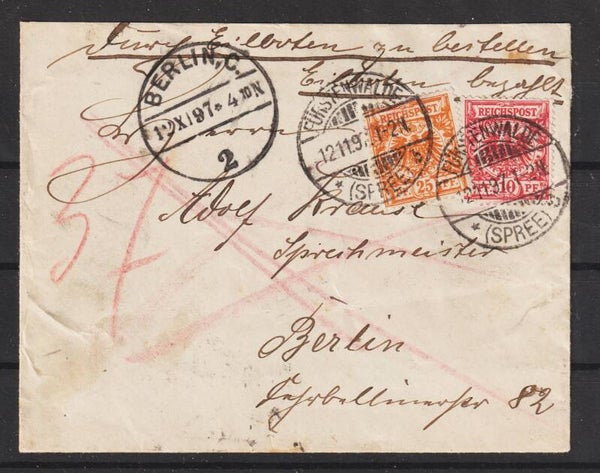 Durch Eilboten zu bestellen
Eilboten bezahlt
BERLIN, C.
12/XI 97 * 4 XII N
2
FÜRSTENWALDE
12 11 9 1-2N
* (SPREE) b
REICHSPOST
25 PF
FÜRSTENWALDE
* (SPREE)
REICHSPOST
10 PF
Herrn
Adolf Krause
Sprechmeister
Berlin
Fehrbellinerstr 82
37